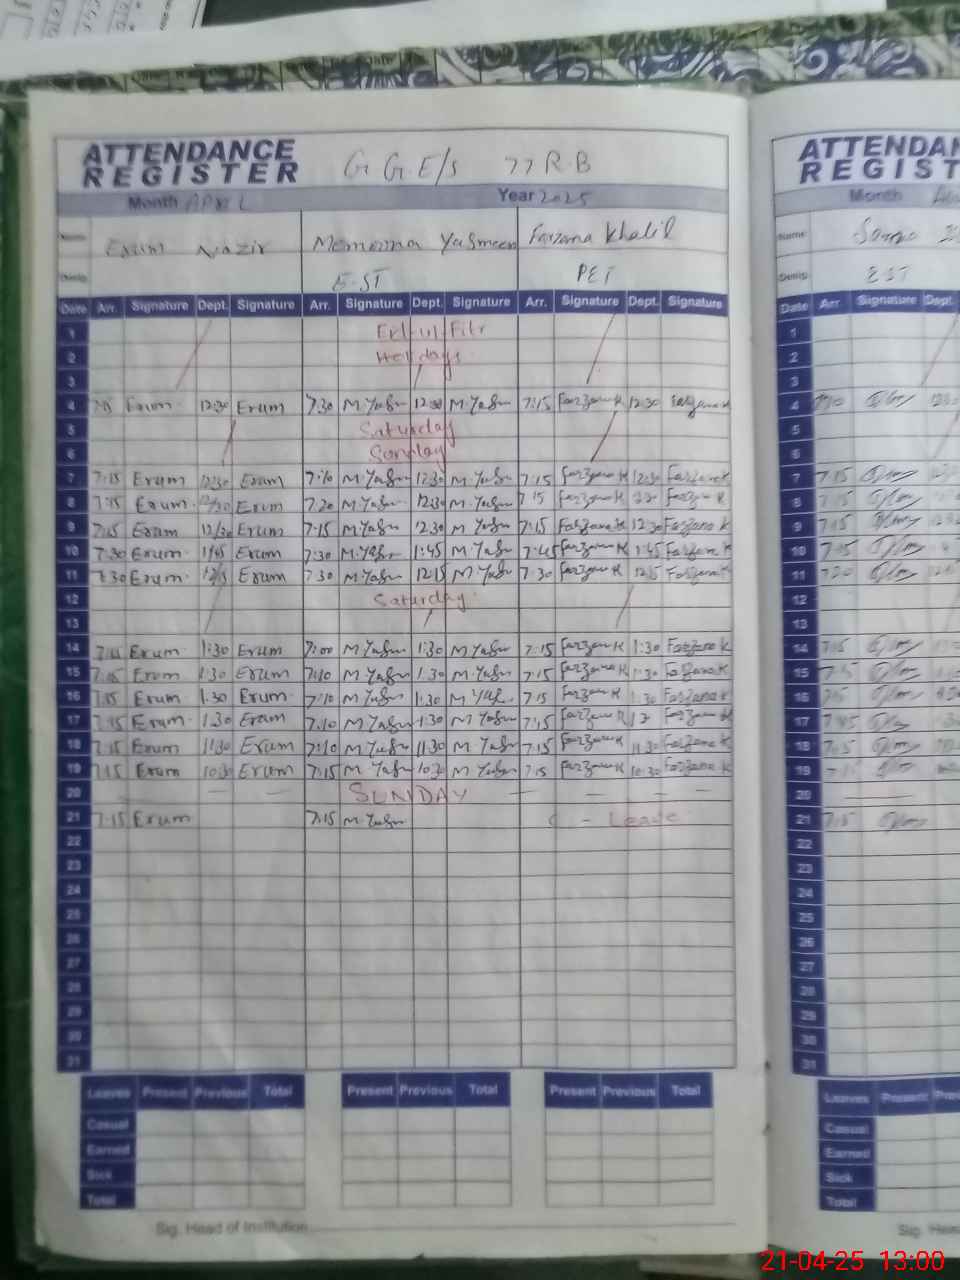 ATTENDANCE REGISTER G G.E/S 77 R.B
Month APRIL Year 2025
Name Erum Nazir Memoona Yasmeen Farzana Khalil
Desig E-ST PET
Date Arr. Signature Dept. Signature Arr. Signature Dept. Signature Arr. Signature Dept. Signature
1 Eid-ul-Fitr
2 Holidays
3
4 Erum 12:30 Erum 7:30 M.Yasm 12:30 M.Yasm 7:15 Farzana K 12:30 Farzana K
5 Saturday
6 Sunday
7 7:15 Erum 12:30 Erum 7:10 M.Yasm 12:30 M.Yasm 7:15 Farzana K 12:30 Farzana K
8 7:15 Erum 12/30 Erum 7.20 M.Yasm 12:30 M.Yasm 7:15 Farzana K Farzana K
9 7:15 Erum 12/30 Erum 7:15 M.Yasm 12:30 M.Yasm 7:15 Farzana K 12:30 Farzana K
10 7:30 Erum 1:45 Erum 7:30 M.Yasm 1:45 M.Yasm 7:45 Farzana K 1:45 Farzana K
11 7:30 Erum 12/15 Erum 7:30 M.Yasm 12:15 M.Yasm 7:30 Farzana K 12:15 Farzana K
12 Saturday
13
14 Erum 1:30 Erum 7:00 M.Yasm 1:30 M.Yasm 7:15 Farzana K 1:30 Farzana K
15 Erum 1:30 Erum 7:10 M.Yasm 1:30 M.Yasm 7:15 Farzana K 1:30 Farzana K
16 7:15 Erum 1:30 Erum 7:10 M.Yasm 1:30 M.Yas 7:15 Farzana K 1:30 Farzana K
17 7:15 Erum 1:30 Erum 7:10 M Yasm 1:30 M Yasm 7:15 Farzana K 12 Farzana K
18 7:15 Erum 11:30 Erum 7:10 M Yasm 11:30 M.Yasm 7:15 Farzana K 11:30 Farzana K
19 7:15 Erum 10:30 Erum 7:15 M Yasm 10:30 M Yasm 7:15 Farzana K 10:30 Farzana K
20 SUNDAY
21 7:15 Erum 7:15 M.Yasm - Leave
22
23
24
25
26
27
28
29
30
31
Leaves Present Previous Total Present Previous Total Present Previous Total
Casual
Earned
Sick
Total
Sig. Head of Institution
ATTENDAN
REGIST
Month
Name
Desig EST
Date Arr. Signature Dept.
1
2
3
4
5
6
7 7:15
8 7:15
9 7:15
10 7:15
11
12
13
14 7:15
15 7:15
16 7:15
17
18
19
20
21 7:15
22
23
24
25
26
27
28
29
30
31
Leaves Present Prev
Casual
Earned
Sick
Total
Sig. Head
21-04-25 13:00